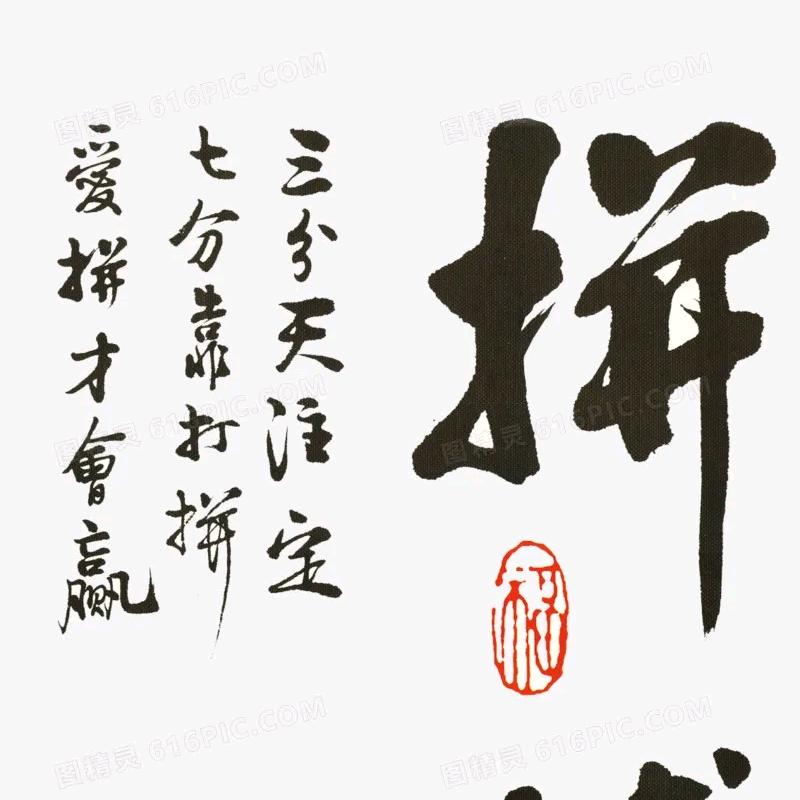 拼
三分天注定
七分靠打拼
愛拼才會贏
图精灵 616PIC.COM
图精灵 616PIC.COM
图精灵 616PIC.COM
图精灵 616PIC.COM
图精灵 616PIC.COM
图精灵 616PIC.COM